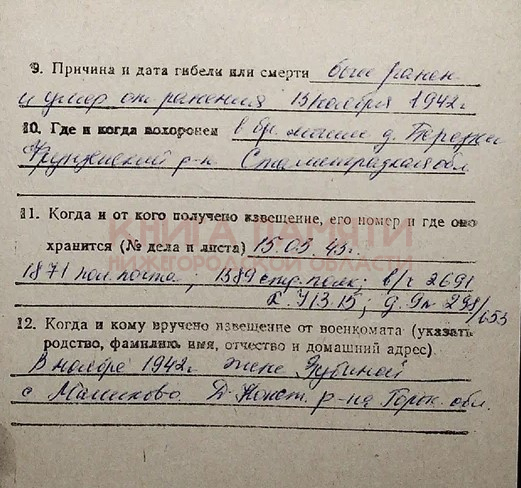 9. Причина и дата гибели или смерти был ранен
и умер от ранения 13 ноября 1942г
10. Где и когда похоронен в бр. могиле д.
Фрунзенский р-н Сталинградская обл
11. Когда и от кого получено извещение, его номер и где оно
хранится (№ дела и листа) 15.03.43г.
КНИГА ПАМЯТИ
НИЖЕГОРОДСКОЙ ОБЛАСТИ
1871 пол. почта; 1389 стр. полк; в/ч 2691
д. 9
12. Когда и кому вручено извещение от военкомата (указать
родство, фамилию, имя, отчество и домашний адрес)
В ноябре 1942г жене Зубиной
с Маликово Д-Конст. р-на Горьк. обл.